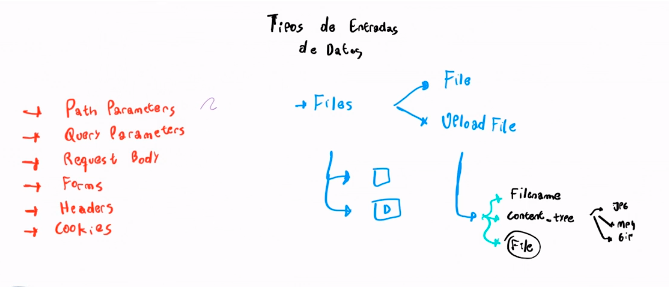 Tipos de Entradas
de Datos
→ Path Parameters
→ Query Parameters
→ Request Body
→ Forms
→ Headers
→ Cookies
→ Files
File
Upload File
D
Filename
Content_type
File
JPG
mpg
Gif